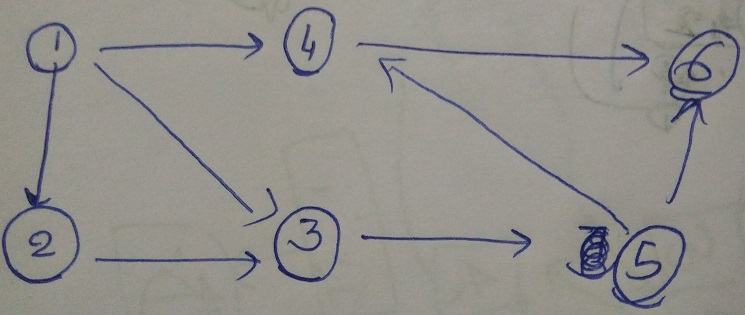 1 4 6
2 3 5